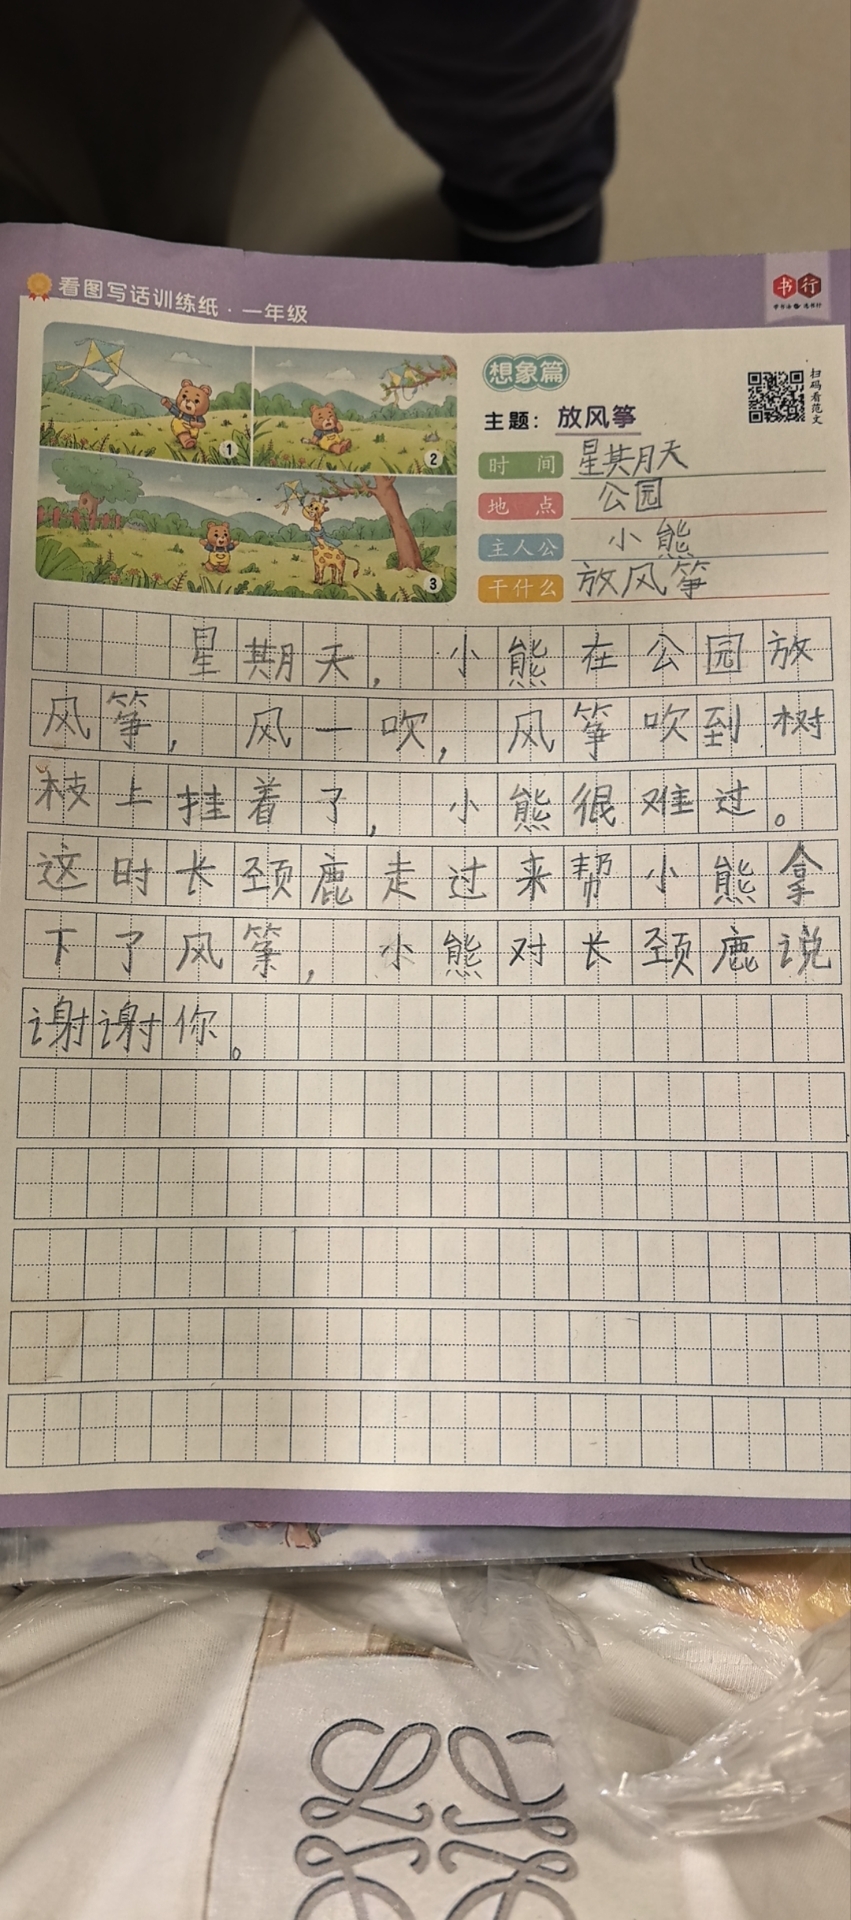 看图写话训练纸·一年级
书行
学书法 选书行
想象篇
扫码看范文
主题：放风筝
时间 星期天
地点 公园
主人公 小熊
干什么 放风筝
1
2
3
星期天，小熊在公园放
风筝，风一吹，风筝吹到树
枝上挂着了，小熊很难过。
这时长颈鹿走过来帮小熊拿
下了风筝，小熊对长颈鹿说
谢谢你。